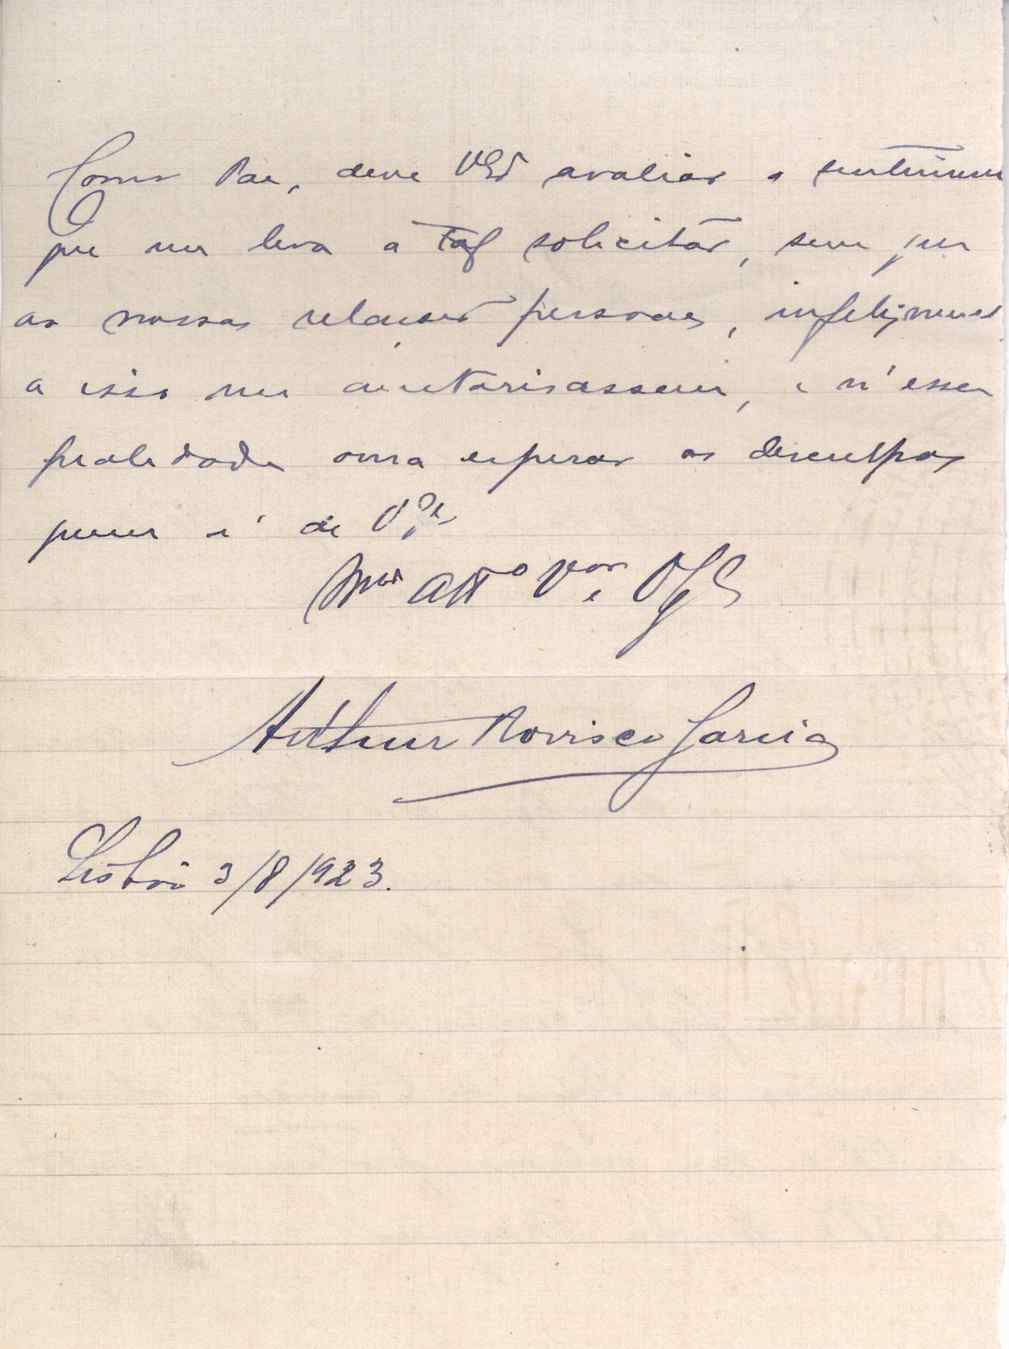 Como Pae, deve VExª avaliar o sentimento
que me leva a tal solicitar, sem que
as nossas relações pessoaes, infelizmente
a isso me auctorisassem, e n'essa
qualidade ousa esperar as desculpas
quem é de V. Exª
Mtº Attº Vor e Obº
Arthur Rovisco Garcia
Lisboa 3/8/923.